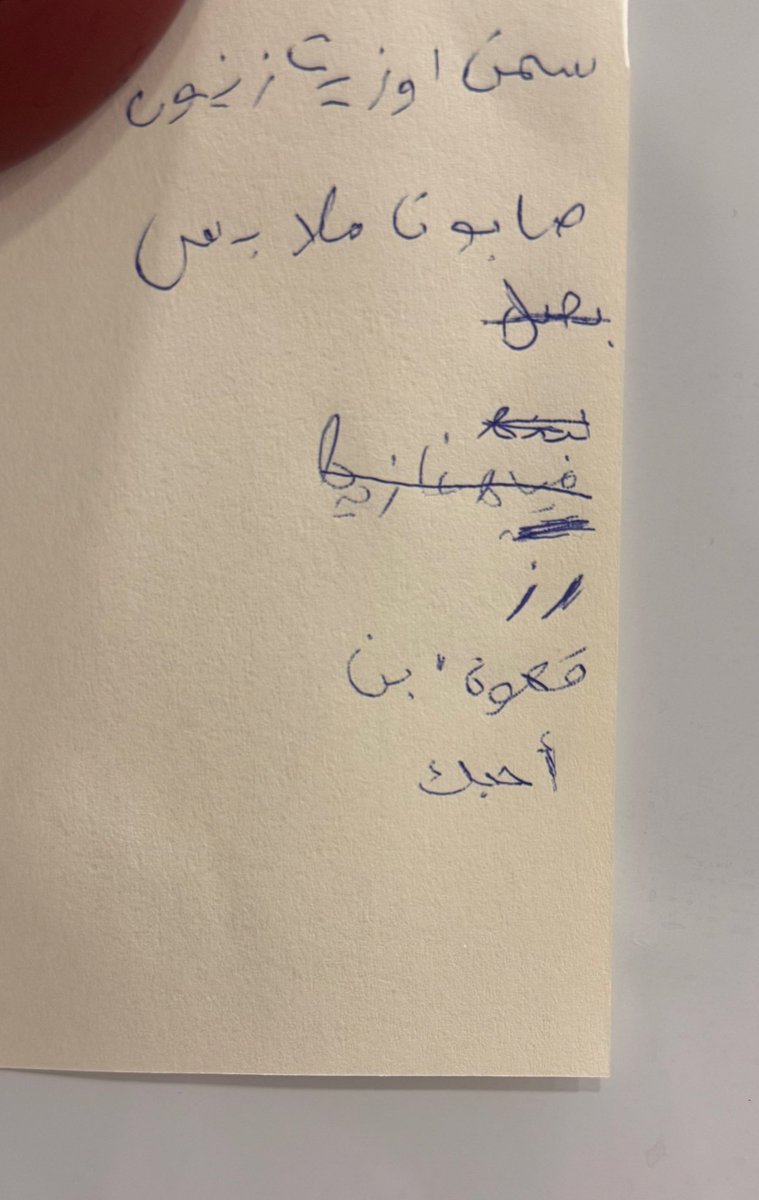 سمن اوزيت زيتون
صابون ملابس
بصل
رز
قهوة، بن
أحبك